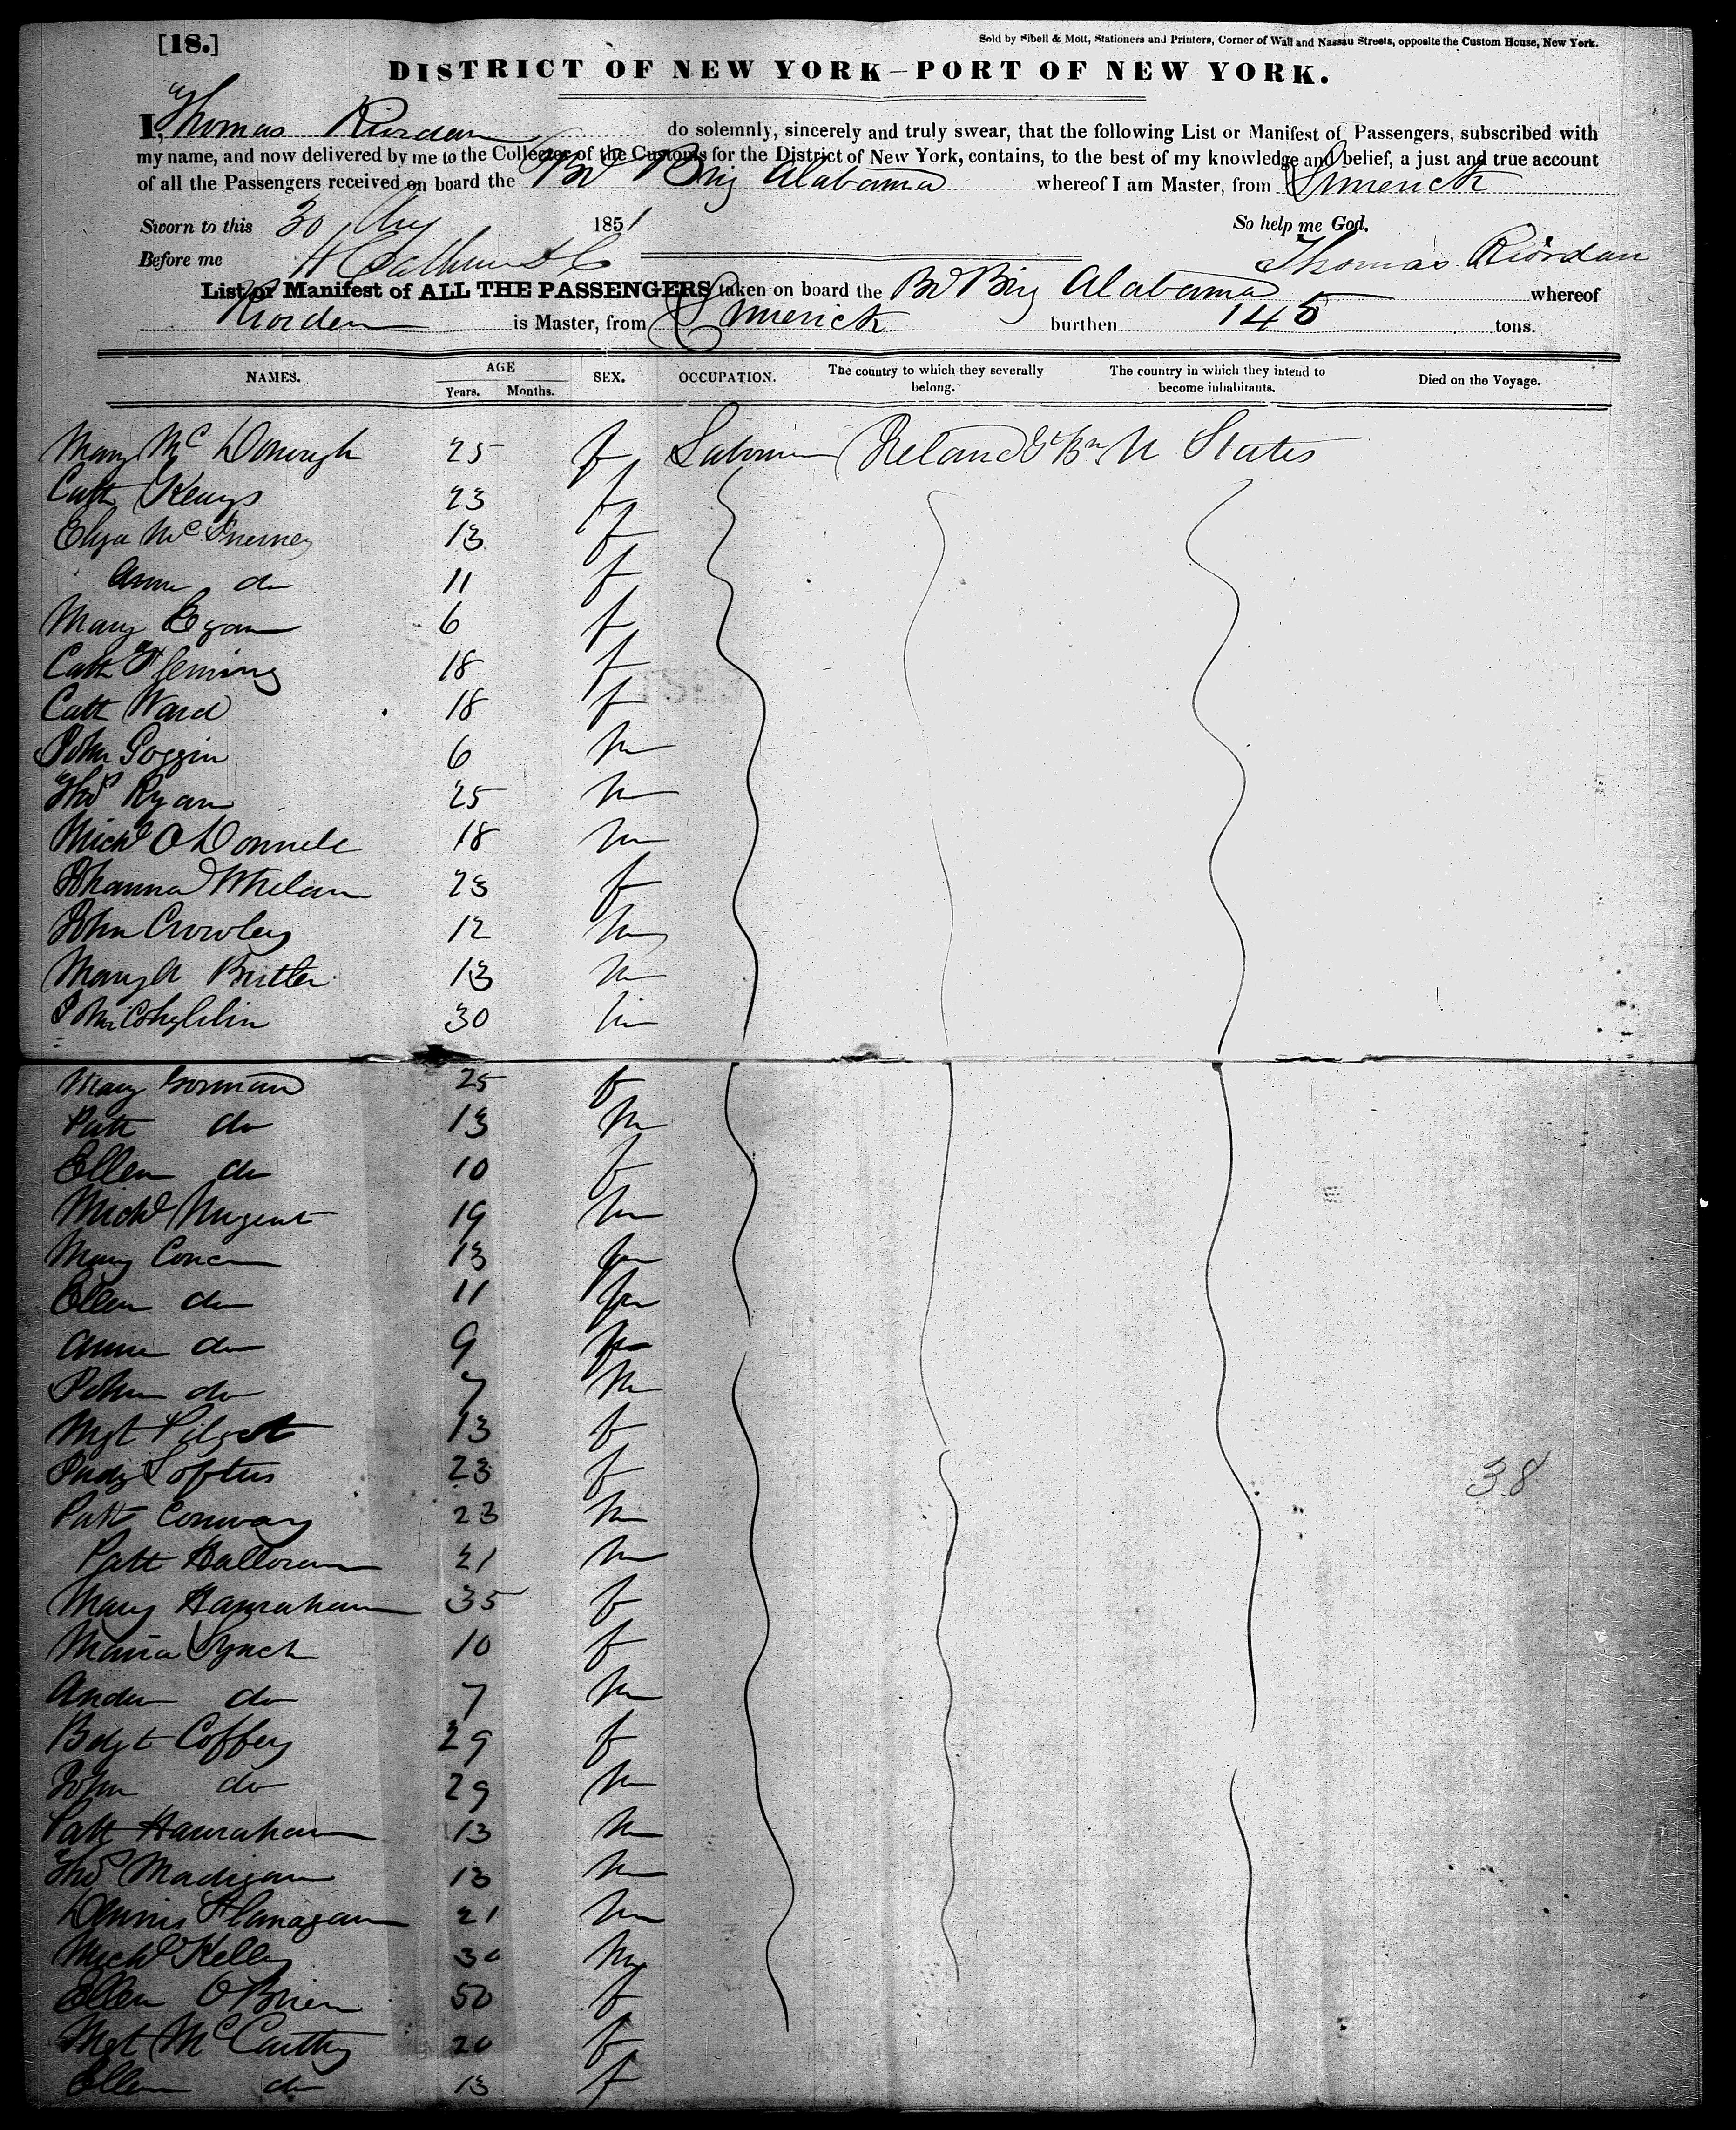 [18.]
Sold by Sibell & Mott, Stationers and Printers, Corner of Wall and Nassau Streets, opposite the Custom House, New York.
DISTRICT OF NEW YORK—PORT OF NEW YORK.
I, Thomas Riordan do solemnly, sincerely and truly swear, that the following List or Manifest of Passengers, subscribed with
my name, and now delivered by me to the Collector of the Customs for the District of New York, contains, to the best of my knowledge and belief, a just and true account
of all the Passengers received on board the Br Brig Alabama whereof I am Master, from Limerick
Sworn to this 30 Aug 1851 So help me God.
Before me Thomas Riordan
List or Manifest of ALL THE PASSENGERS taken on board the Br Brig Alabama whereof
Riorden is Master, from Limerick burthen 145 tons.
NAMES. AGE SEX. OCCUPATION. The country to which they severally belong. The country in which they intend to become inhabitants. Died on the Voyage.
Years. Months.
Mary McDonough 25 f Labourer Ireland Gt Bn U States
Cath Keays 23 f
Eliza McInerney 13 f
Anne do 11 f
Mary Egan 6 f
Cath Fleming 18 f
Cath Ward 18 f
John Goggin 6 m
Thos Ryan 25 m
Michl ODonnell 18 m
Johanna Whelan 23 f
John Crowley 12 m
Mary A Butler 13 m
30 m
Mary Gorman 25 f
Patt do 13 m
Ellen do 10 f
Michl Nugent 19 m
Mary 13 f
Ellen do 11 f
Anne do 9 f
John do 7 m
Mgt 13 f
Judy Loftus 23 f
38
Patt Conway 23 m
Patt Halloran 21 m
Mary Hanrahan 35 f
Maria Lynch 10 f
Andw do 7 m
Bdgt Coffey 29 f
John do 29 m
Patt Hanrahan 13 m
Thos Madigan 13 m
Dennis Flanagan 21 m
Michl Kelly 30 m
Ellen OBrien 50 f
Mgt McCarthy 20 f
Ellen do 13 f